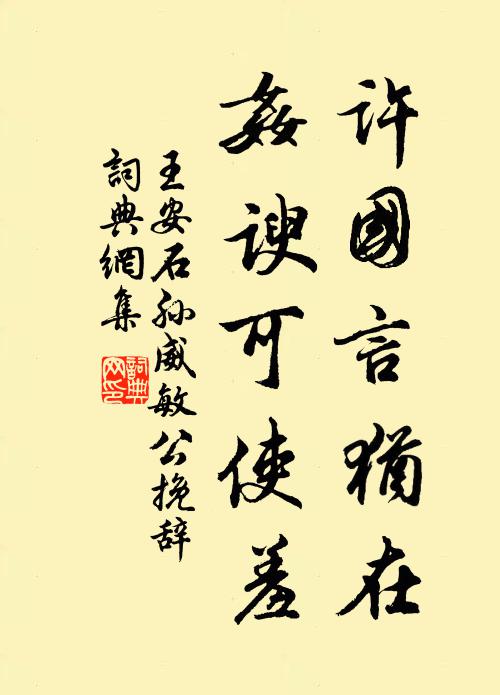 許國言猶在
姦諛可使羞
王安石孙威敏公挽辞
詞典網集
詞典
网印